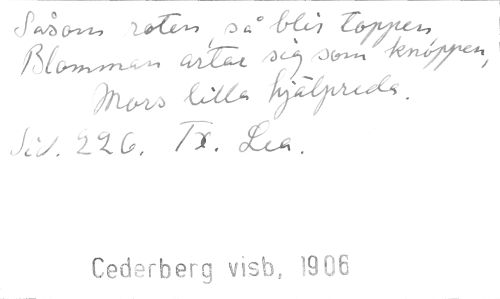 Såsom roten, så blir toppen,
Blomman artar sig som knoppen,
Mors lilla hjälpreda.
Sid. 226. Tx. Lea.
Cederberg visb, 1906